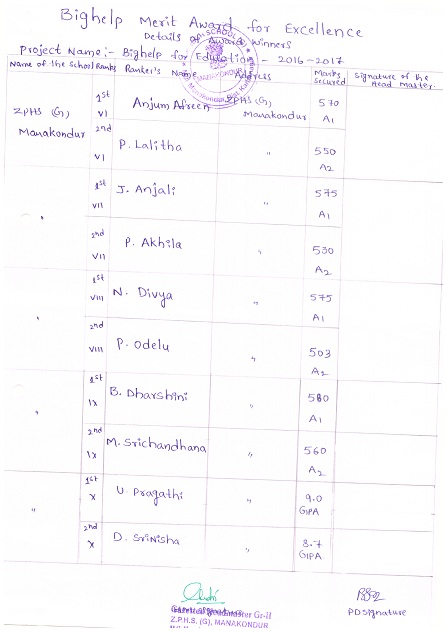 Bighelp Merit Award for Excellence
Details of Award Winners
Project Name:- Bighelp for Education - 2016-2017
Name of the School Ranks Ranker's Name Address Marks Secured Signature of the Head master.
ZPHS (G) Manakondur 1st VI Anjum Afreen ZPHS (G) Manakondur 570 A1
2nd VI P. Lalitha " 550 A2
" 1st VII J. Anjali " 575 A1
2nd VII P. Akhila " 530 A2
" 1st VIII N. Divya " 575 A1
2nd VIII P. Odelu " 503 A2
" 1st IX B. Dharshini " 580 A1
2nd IX M. Srichandhana " 560 A2
" 1st X U. Pragathi " 9.0 GIPA
2nd X D. SriNisha " 8.7 GIPA
PD Signature
Gr-II
Z.P.H.S. (G), MANAKONDUR